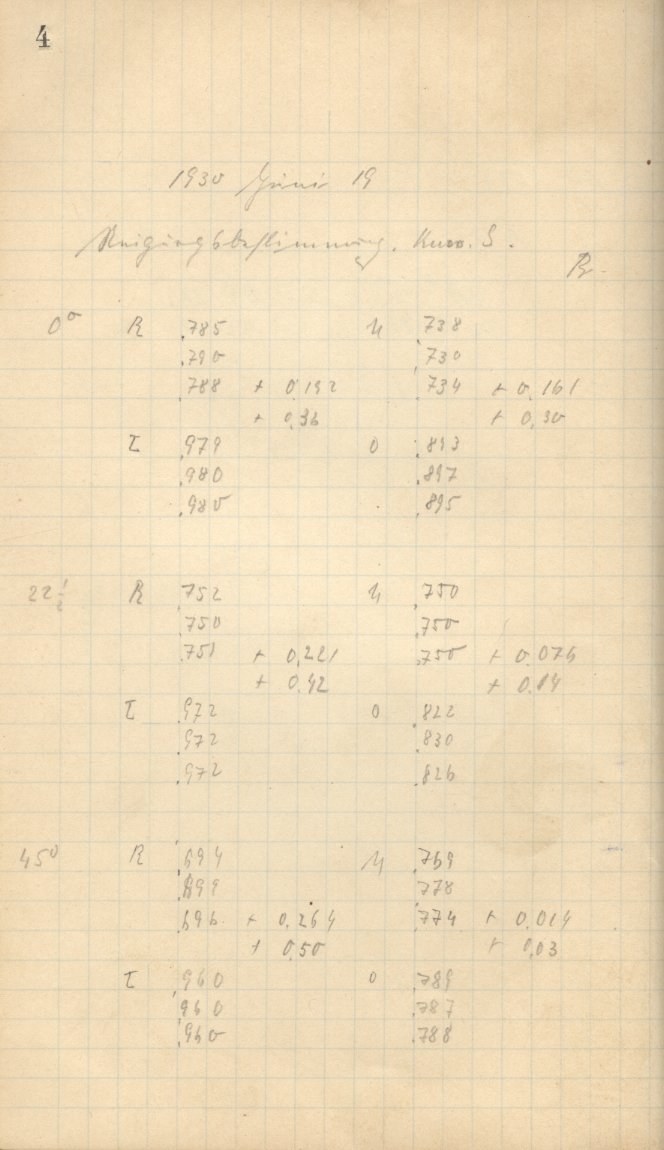 4
1930 Juni 19
Neigungsbestimmung. Kurv. S.
0° R .785 U .738
.790 .730
.788 + 0,192 .734 + 0,161
+ 0,36 + 0,30
L .979 O .893
.980 .897
.980 .895
22 1/2 R .752 U .750
.750 .750
.751 + 0,221 .750 + 0.076
+ 0.42 + 0.14
L .972 O .822
.972 .830
.972 .826
45° R .694 U .769
.699 .778
.696 + 0.264 .774 + 0.014
+ 0,50 + 0,03
L .960 O .789
.960 .787
.960 .788